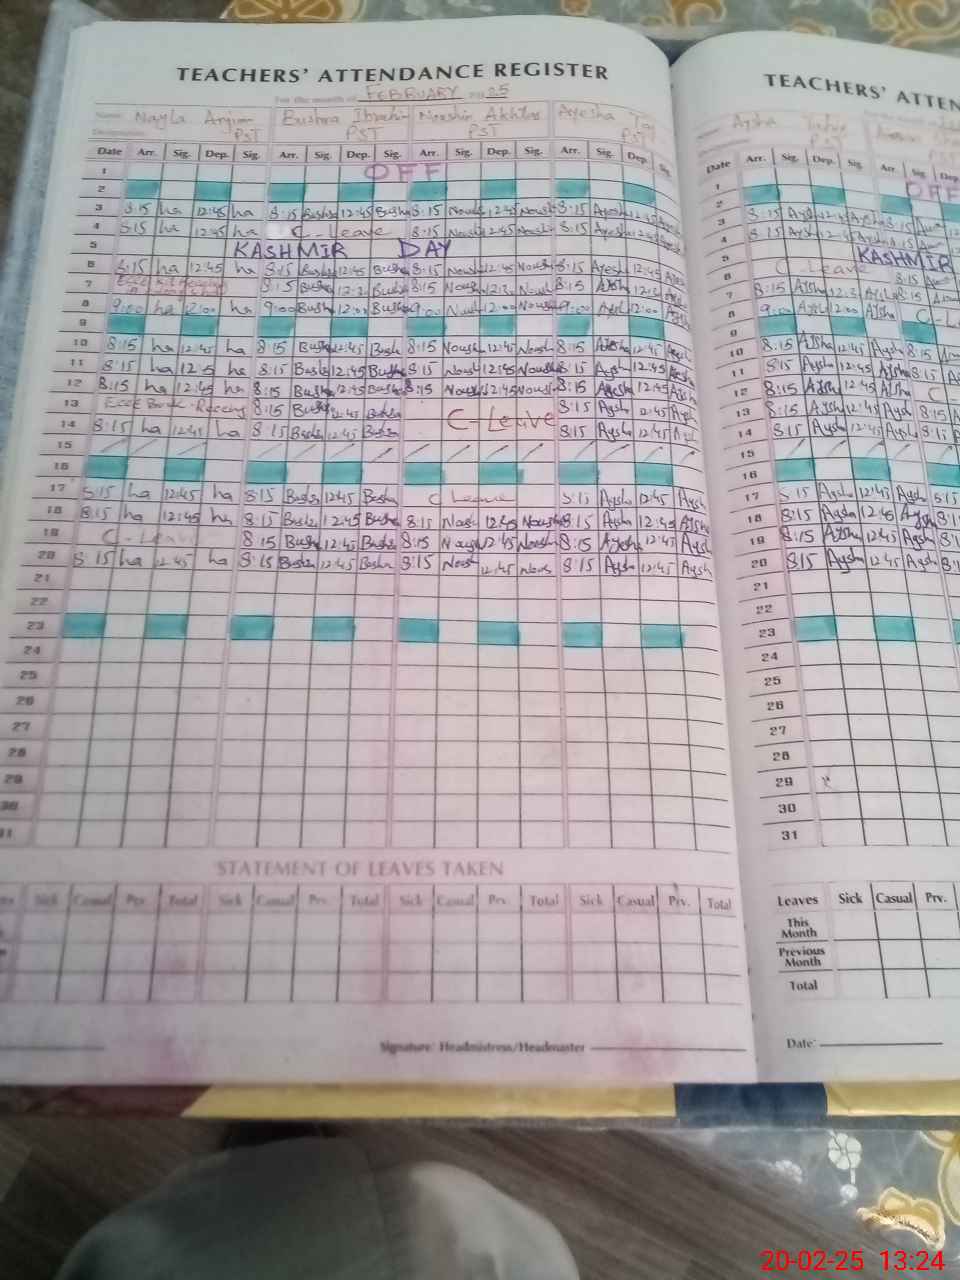 TEACHERS' ATTENDANCE REGISTER
For the month of FEBRUARY 2025
Name Nayla Anjum Bushra Ibrahim Noushin Akhtar Ayesha
Designation PST PST PST PST
Date Arr. Sig. Dep. Sig. Arr. Sig. Dep. Sig. Arr. Sig. Dep. Sig. Arr. Sig. Dep. Sig.
1 OFF
2
3 8:15 ha 12:45 ha 8:15 Bushra 12:45 Bushra 8:15 Noush 12:45 Noush 8:15 Ayesha 12:45 Ayesha
4 8:15 ha 12:45 ha C-Leave 8:15 Noush 12:45 Noush 8:15 Ayesha 12:45 Ayesha
5 KASHMIR DAY
6 8:15 ha 12:45 ha 8:15 Bushra 12:45 Bushra 8:15 Noush 12:45 Noush 8:15 Ayesha 12:45 Ayesha
7 8:15 Bushra Bushra 8:15 Noush Noush 8:15 Aysha
8 9:00 ha 12:00 ha 9:00 Bush 12:00 Bush 9:00 Noush 12:00 Noush 9:00 Aysh 12:00 Aysh
9
10 8:15 ha 12:45 ha 8:15 Bush 12:45 Bush 8:15 Noush 12:45 Noush 8:15 Aysha 12:45 Aysh
11 8:15 ha 12:45 ha 8:15 Bush 12:45 Bush 8:15 Noush 12:45 Noush 8:15 Aysha 12:45 Aysha
12 8:15 ha 12:45 ha 8:15 Bush 12:45 Bush 8:15 Noush 12:45 Noush 8:15 Aysha 12:45 Aysh
13 8:15 Bush 12:45 Bushra C-Leave 8:15 Aysh 12:45 Aysh
14 8:15 ha 12:45 ha 8:15 Bush 12:45 Bushra 8:15 Aysha 12:45 Aysh
15
16
17 8:15 ha 12:45 ha 8:15 Bushra 12:45 Bushra C Leave 8:15 Aysha 12:45 Aysh
18 8:15 ha 12:45 ha 8:15 Bushra 12:45 Bush 8:15 Noush 12:45 Noush 8:15 Aysha 12:45 Aysh
19 C-Leave 8:15 Bushra 12:45 Bushra 8:15 Noush 12:45 Noush 8:15 Aysha 12:45 Aysh
20 8:15 ha 12:45 ha 8:15 Bushra 12:45 Bushra 8:15 Noush 12:45 Nous 8:15 Aysh 12:45 Aysh
21
22
23
24
25
26
27
28
29
30
31
STATEMENT OF LEAVES TAKEN
Sick Casual Prv. Total Sick Casual Prv. Total Sick Casual Prv. Total Sick Casual Prv. Total
Signature: Headmistress/Headmaster
TEACHERS' ATTEN
Name Aysha
Date Arr. Sig. Dep. Sig. Arr. Sig. Dep
1 OFF
2
3 8:15 Aysh 12:45 Aysha 8:15
4 8:15 Aysh 12:45 Aysha 8:15
5 KASHMIR
6 C-Leave 8:15
7 8:15 Aysha Aysha 8:15
8 9:00 Aysh 12:00 Aysha
9
10 8:15 Aysha 12:45 Aysha 8:15
11 8:15 Aysha 12:45 Aysha 8:15
12 8:15 Aysha 12:45 Aysha C
13 8:15 Aysha 12:45 Aysh 8:15
14 8:15 Aysha 12:45 Aysh 8:15
15
16
17 8:15 Aysha 12:45 Aysha 8:15
18 8:15 Aysha 12:45 Aysha 8:15
19 8:15 Aysha 12:45 Aysha
20 8:15 Aysha 12:45 Aysh
21
22
23
24
25
26
27
28
29
30
31
Leaves Sick Casual Prv.
This Month
Previous Month
Total
Date:
20-02-25 13:24